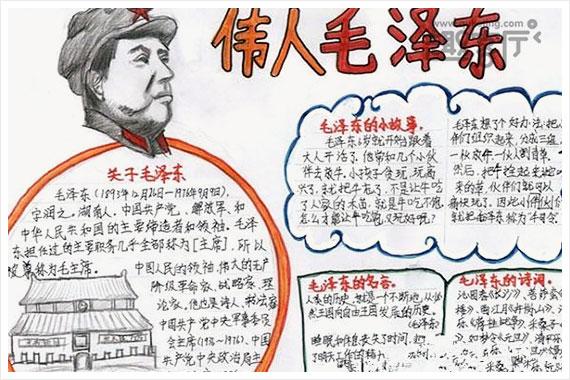 伟人毛泽东
关于毛泽东
毛泽东(1893年12月26日-1976年9月9日),
字润之,湖南人。中国共产党、解放军、和
中华人民共和国的主要缔造者和领袖。毛泽
东担任过的主要职务几乎全部称为[主席],所以
被尊称为毛主席。
中国人民的领袖,伟大的无产
阶级革命家、战略家、理
论家。他也是诗人、书法家
中国共产党中央军事委员
会主席(1936-1976),中国
共产党中央政治局主
毛泽东的小故事。
毛泽东6岁就开始跟着
大人干活了。他常和几个小伙
伴去放牛。小孩子贪玩,玩高
兴了,就把牛忘了,不是让牛吃
了人家的禾苗,就是牛吃不饱。
怎么才能让牛吃饱,又玩好呢?
毛泽东想了个好办法:把小
伙伴们组织起来,分成三组:
一伙放牛,一伙割青草,
然后,把
来的草,伙伴们就可以
痛快玩了。因此小伙伴们
就把毛泽东称为"牛司令。
毛泽东的名言。
人类的历史,就是一个不断地从必
然王国向自由王国发展的历史。
(毛泽东)
睡眠和休息丧失了时间,却
了明天工作的精力
毛泽东的诗词。
沁园春《长沙》、菩萨蛮
楼》、西江月《井冈山》、